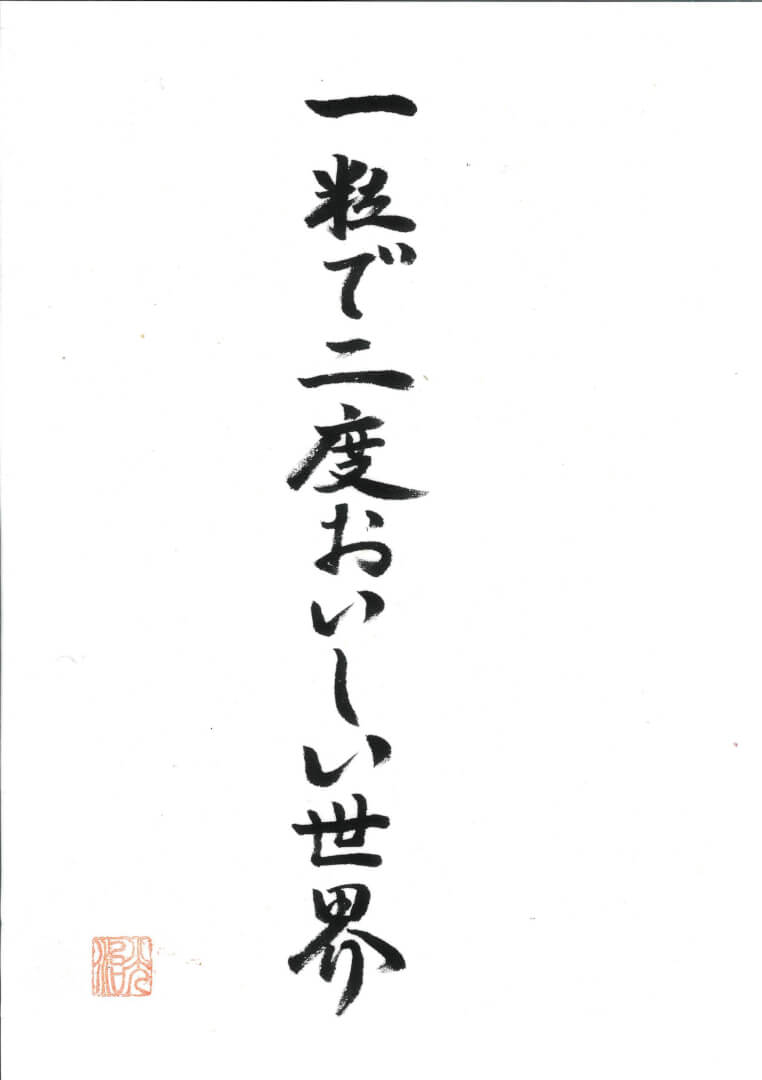 一粒で二度おいしい世界